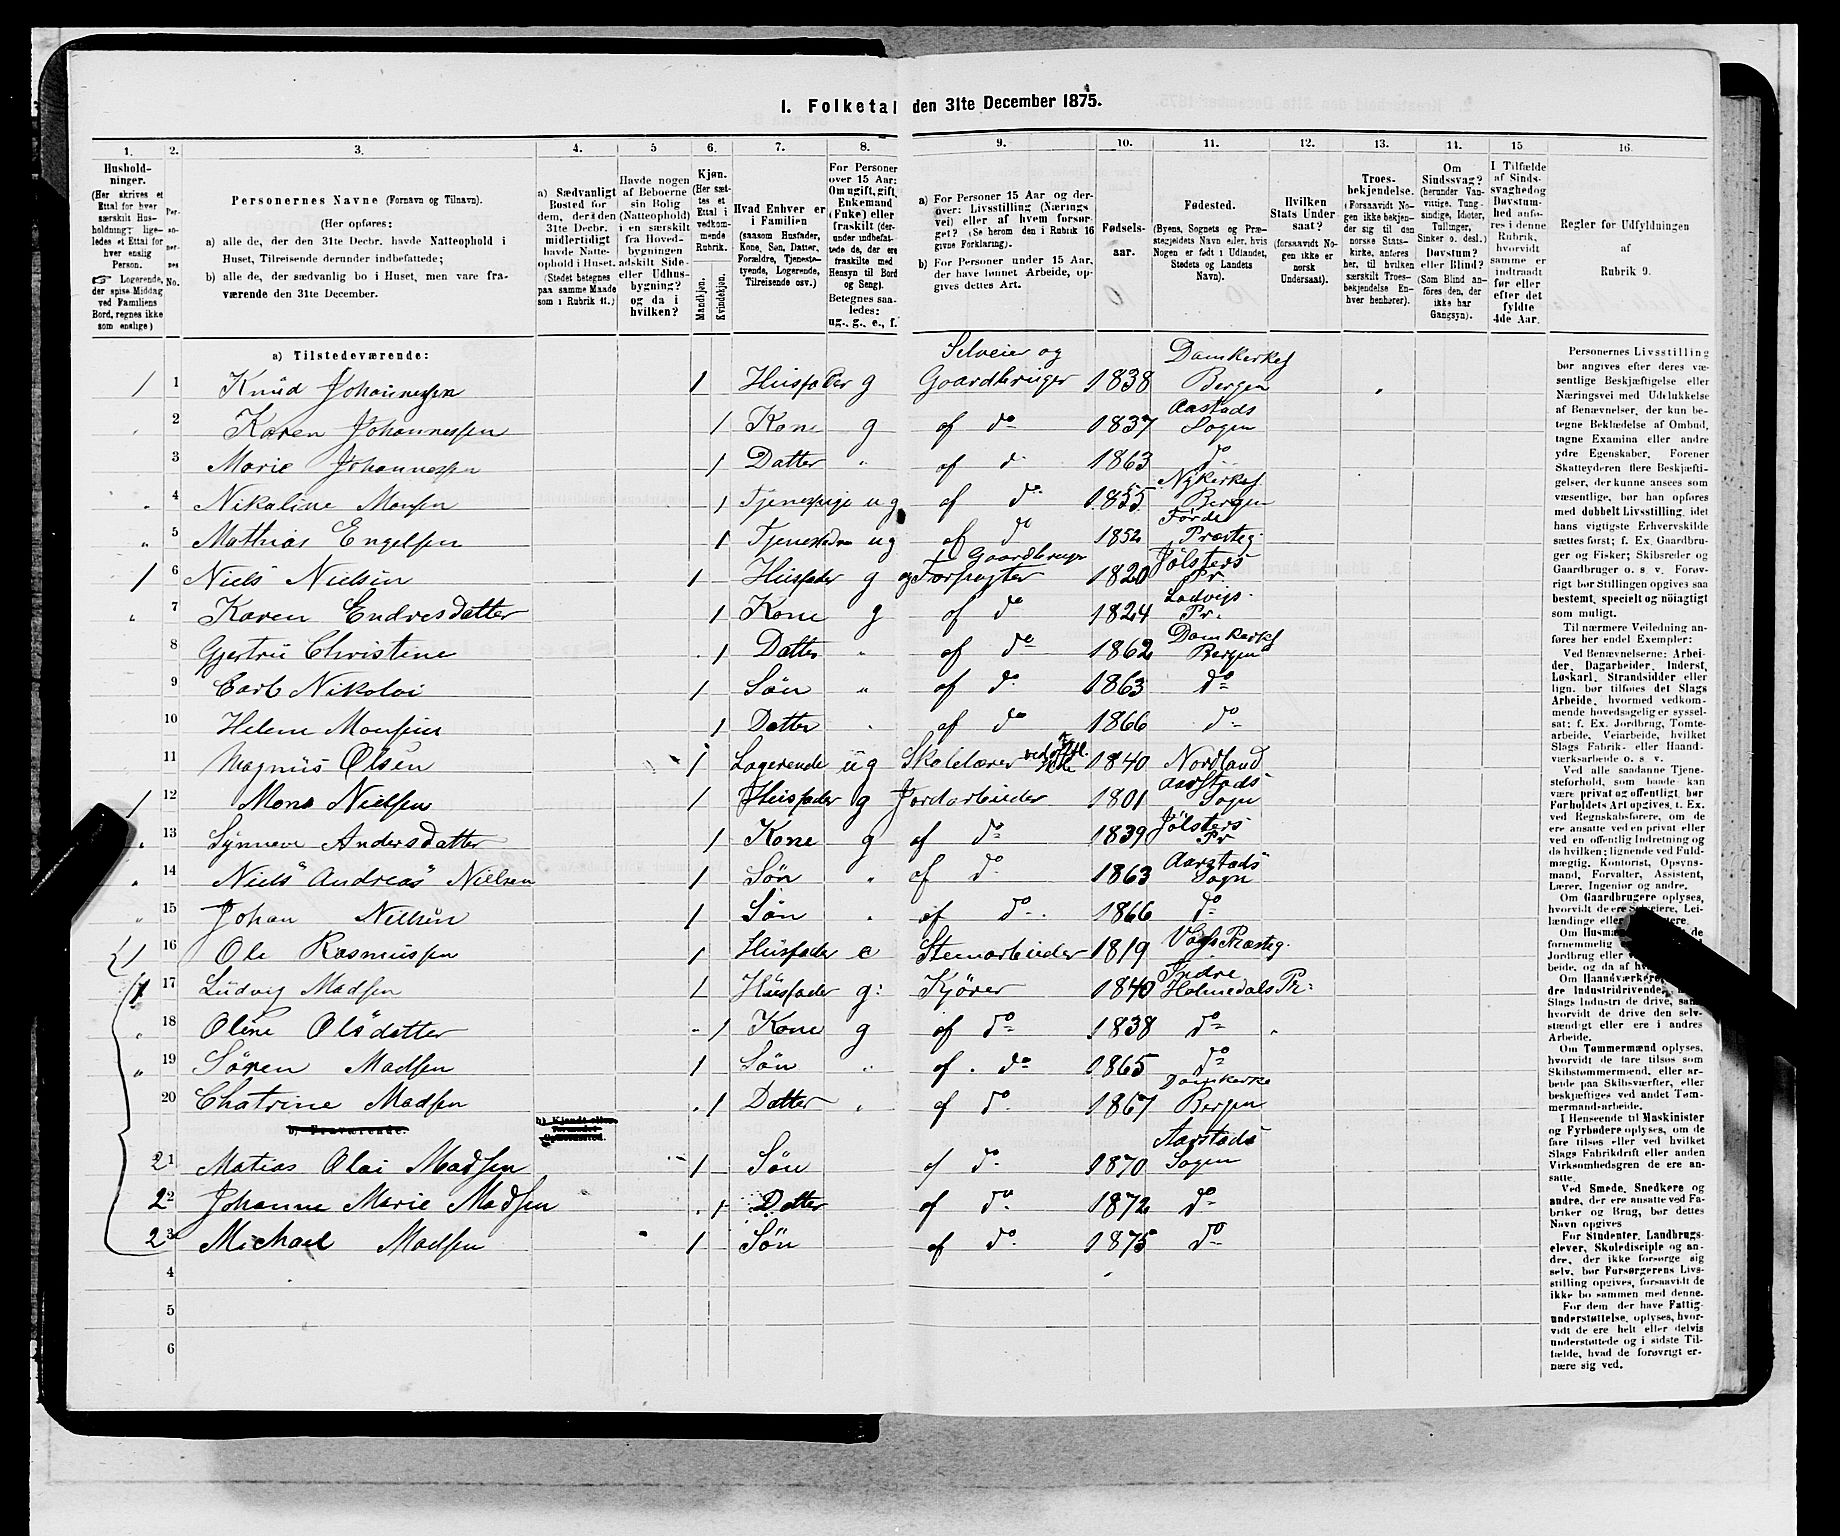 I. Folketal den 31te December 1875.
1. 2. 3. 4. 5 6. 7. 8. 9. 10. 11. 12. 13. 14. 15 16.
Hushold-
ninger.
(Her skrives et
Ettal for hver
særskilt Hus-
holdning; lige-
ledes et Ettal for
hver enslig
Person.
☞ Logerende,
der spise Middag
ved Familiens
Bord, regnes ikke
som enslige.)
Per-
so-
ner-
nes
No.
Personernes Navne (Fornavn og Tilnavn).
(Her opføres:
a) alle de, der den 31te Decbr. havde Natteophold i
Huset, Tilreisende derunder indbefattede;
b) alle de, der sædvanlig bo i Huset, men vare fra-
værende den 31te December.
a) Sædvanligt
Bosted for
dem, der i den
31te Decbr.
midlertidigt
havde Natte-
ophold i Huset.
(Stedet betegnes
paa samme Maade
som i Rubrik 11.)
Havde nogen
af Beboerne
sin Bolig
(Natteophold)
i en særskilt
fra Hoved-
bygningen
adskilt Side
eller Udhus-
bygning?
og da i
hvilken?
Kjøn.
(Her sæt-
tes et
Ettal i
vedkom-
mende
Rubrik.
Mandkjøn.
Kvindekjøn.
Hvad Enhver er
i Familien
(saasom Husfader,
Kone, Søn, Datter,
Forældre, Tjeneste-
tyende, Logerende,
Tilreisende osv.)
For Personer
over 15 Aar:
Om ugift, gift,
Enkemand
(Enke) eller
fraskilt (der-
under indbefat-
tede de, der ere
fraskilte med
Hensyn til Bord
og Seng).
Betegnes saa-
ledes:
ug., g., e., f.
a) For Personer 15 Aar og der-
over: Livsstilling (Nærings
vei) eller af hvem forsør-
get? (Se herom den i Rubrik 16
givne Forklaring).
b) For Personer under 15 Aar,
der have lønnet Arbeide, op-
gives dettes Art.
Fødsels-
aar.
Fødested.
(Byens, Sognets og Præ-
stegjeldets Navn eller, hvis
Nogen er født i Udlandet,
Stedets og Landets
Navn).
Hvilken
Stats Under
saat?
(forsaavidt No-
gen ikke er
norsk
Undersaat).
Troes-
bekjendelse.
(Forsaavidt No-
gen ikke bekjen-
der sig til den
norske Stats-
kirke, anføres
her, til hvilken
særskilt Troes-
bekjendelse En-
hver henhører).
Om
Sindssvag?
(herunder Van-
vittige, Tung-
sindige, Idioter,
Tullinger,
Sinker o. desl.)
Døvstum?
eller Blind?
(Som Blind an-
føres den, der
ikke har
Gangsyn).
I Tilfælde
af Sinds-
svaghedog
Døvstum-
hed anfø-
res i denne
Rubrik,
hvorvidt
samme er
indtraadt
før eller
efter det
fyldte
4de Aar.
Regler for Udfyldningen
af
Rubrik 9.
a) Tilstedeværende:
1 1 Knud Johannessen 1 Husfader g Selveier og Gaardbruger 1838 Domkirkes Bergen
2 Karen Johannessen 1 Kone g af do 1837 Aarstads Sogn
3 Marie Johannessen 1 Datter " af do 1863 do
4 Nikoline Monsen 1 Tjenespige ug af do 1855 Nykirkes Bergen
5 Mathias Engelsen 1 ug af do 1852 Førde Præsteg.
1 6 Niels Nielsen 1 Husfader g Gaardbruger og Forpagter 1820 Jølsters Pr
7 Karen Endresdatter 1 Kone g af do 1824 Ladvigs Pr.
8 Gjertru Christine 1 Datter " af do 1862 Domkirkes Bergen
9 Carl Nikolai 1 Søn " af do 1863 do
10 Helene Monsen 1 Datter " af do 1866 do
11 Magnus Olsen 1 Logerende ug Skolelærer 1840 Nordland
1 12 Mons Nielsen 1 Husfader g Jordarbeider 1801 Aarstads Sogn
13 Synneve Andersdatter 1 Kone g af do 1839 Jølsters Pr
14 Niels "Andreas" Nielsen 1 Søn " af do 1863 Aarstads Sogn
15 Johan Nielsen 1 Søn " af do 1866 do
1 16 Ole Rasmussen 1 Husfader e Stenarbeider 1819 Præsteg.
1 17 Ludvig Madsen 1 Husfader g: Kjører 1840 Indre Holmedals Pr:
18 Oline Olsdatter 1 Kone g af do 1838 do
19 Søren Madsen 1 Søn " af do 1865 do
20 Chatrine Madsen 1 Datter " af do 1867 Domkirke Bergen
b) Fraværende.
b) Kjendt eller
formodet
Opholdssted.
21 Matias Olai Madsen 1 Søn af do 1870 Aarstads Sogn
22 Johanne Marie Madsen 1 Datter af do 1872 do
23 Michael Madsen 1 Søn af do 1875 do
4
5
6
Personernes Livsstilling
bør angives efter deres væ-
sentlige Beskjæftigelse eller
Næringsvei med Udelukkelse
af Benævnelser, der kun be-
tegne Beklædelse af Ombud,
tagne Examina eller andre
ydre Egenskaber. Forener
Skatteyderen flere Beskjæfti-
gelser, der kunne ansees som
væsentlige, bør han opføres
med dobbelt Livsstilling, idet
hans vigtigste Erhvervskilde
sættes først; f. Ex. Gaardbru-
ger og Fisker; Skibsreder og
Gaardbruger o. s. v. Forøv-
rigt bør Stillingen opgives saa
bestemt, specielt og nöiagtigt
som muligt.
Til nærmere Veiledning an-
føres her endel Exempler:
Ved Benævnelserne: Arbei-
der, Dagarbeider, Inderst,
Løskarl, Strandsidder eller
lign. bør tilføies det Slags
Arbeide, hvormed vedkom-
mende hovedsagelig er syssel-
sat; f. Ex. Jordbrug, Tomte-
arbeide, Veiarbeide, hvilket
Slags Fabrik- eller Haand-
værksarbeide o. s. v.
Ved alle saadanne Tjene-
steforhold, som baade kan
være privat og offentligt, bør
Forholdets Art opgives, t. Ex.
ved Regnskabsførere, om de
ere ansatte ved en privat eller
ved en offentlig Indretning og
da hvilken; lignende ved Fuld-
mægtig, Kontorist, Opsyns-
mand, Forvalter, Assistent,
Lærer, Ingeniør og andre.
Om Gaardbrugere oplyses,
hvorvidt de ere Selveiere, Lei-
lændinge eller
Om
fornemmelig
Jordbrug eller
beide, og da af
Om Haandværkere
dre Industridrivende,
Slags Industri de drive,
hvorvidt de drive den selv-
stændigt eller ere i andres
Arbeide.
Om Tømmermænd oplyses,
hvorvidt de fare tilsøs som
Skibstømmermænd, eller ar-
beide paa Skibsværfter, eller
beskjæftiges ved andet Tøm-
mermandsarbeide.
I Henseende til Maskinister
og Fyrbødere oplyses, om de
fare tilsøs eller ved hvilket
Slags Fabrikdrift eller anden
Virksomhedsgren de ere an-
satte.
Ved Smede, Snedkere og
andre, der ere ansatte ved Fa-
briker og Brug, bør dettes
Navn opgives
For Studenter, Landbrugs-
elever, Skoledisciple og an-
dre, der ikke forsørge sig
selv, bør Forsørgerens Livs-
stilling opgives, forsaavidt de
ikke bo sammen med denne.
For dem der have Fattig-
understøttelse, oplyses, hvor-
vidt de ere helt eller delvis
understøttede og i sidste Til-
fælde, hvad de forøvrigt er-
nære sig ved.